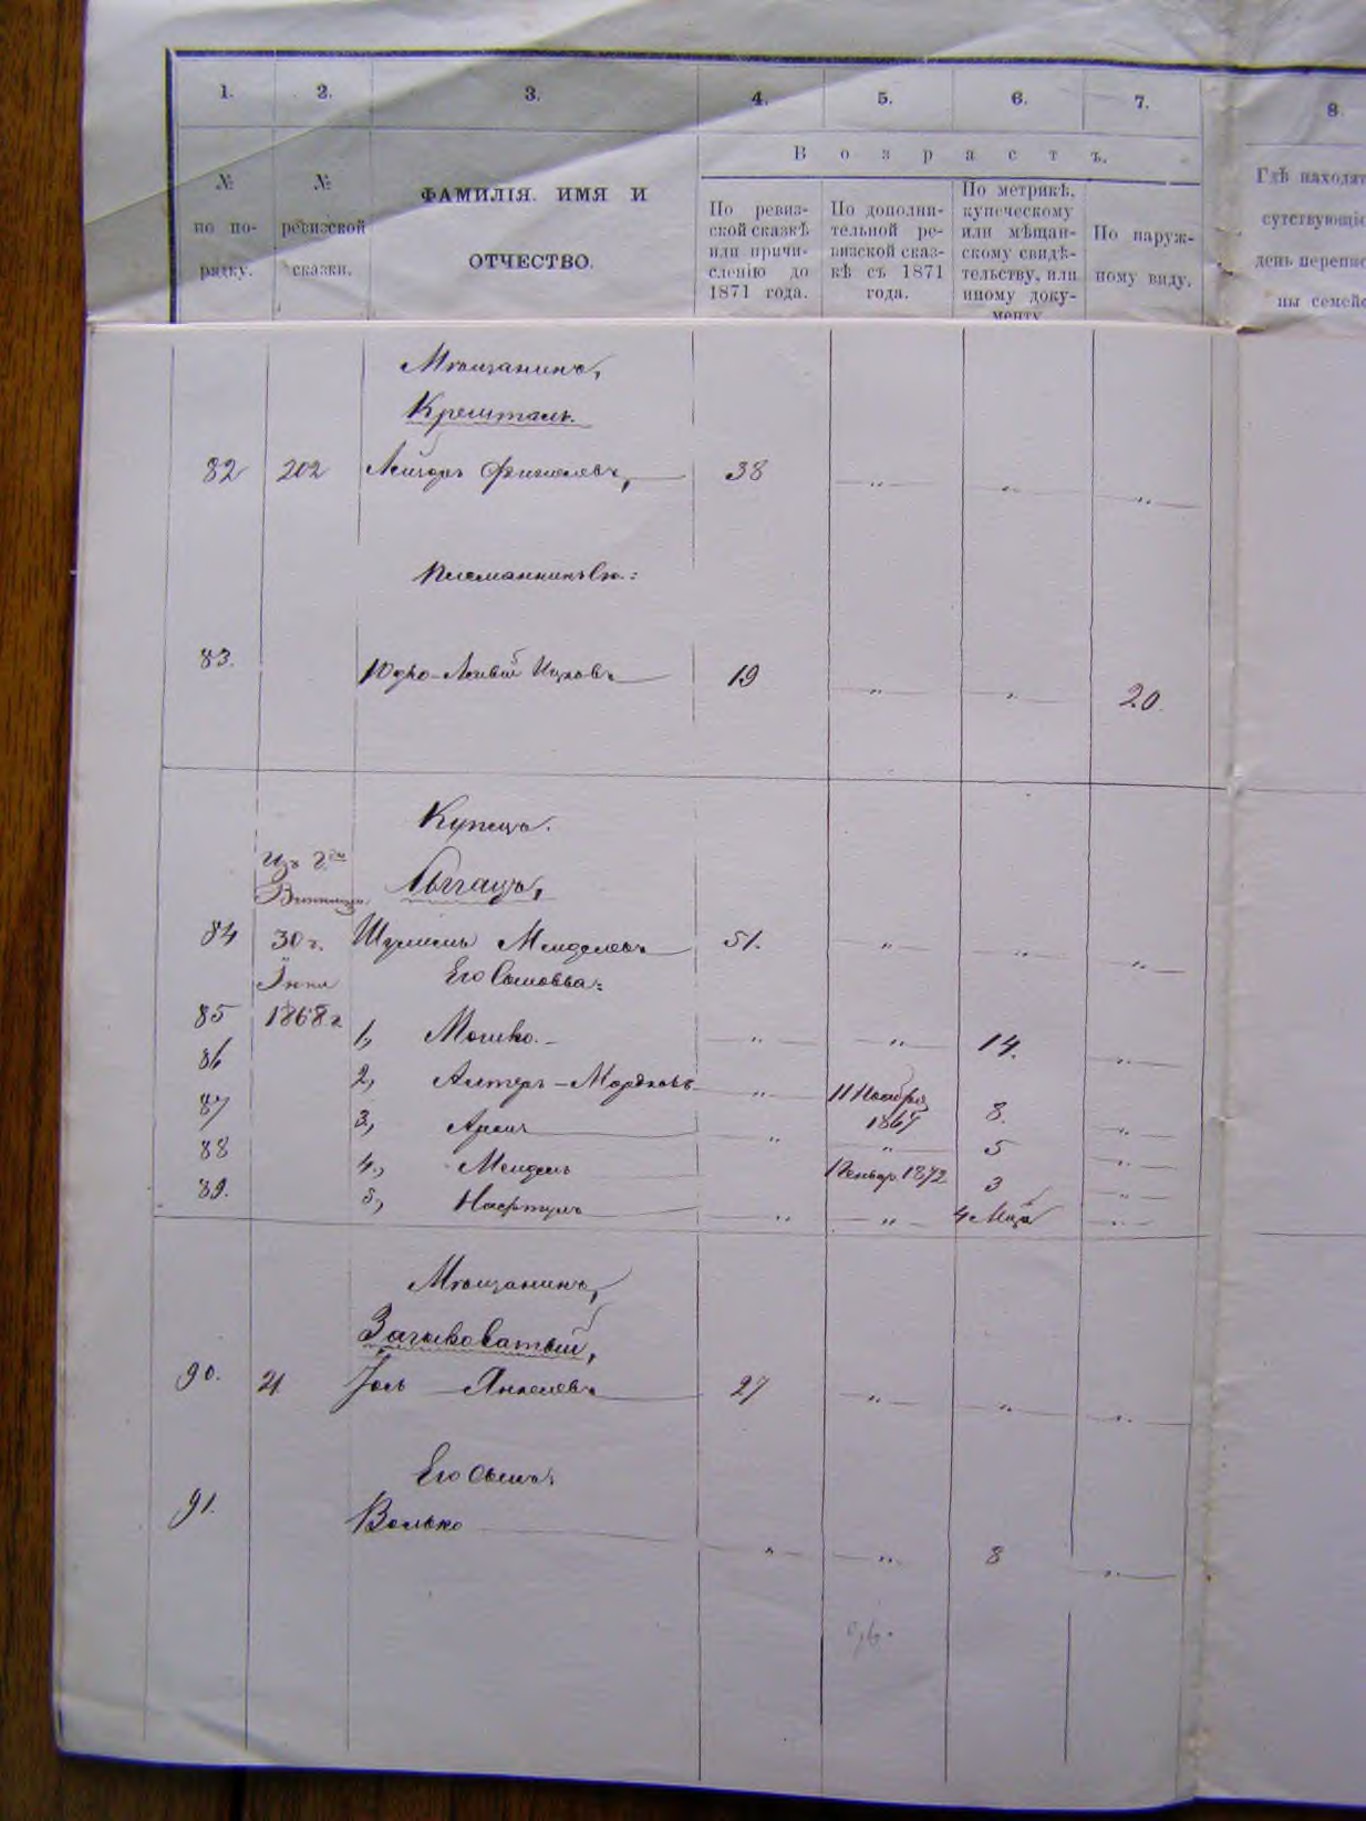 1. 2. 3. 4. 5. 6. 7. 8.
В о з р а с т ъ.
№ по по- рядку.
№ ревизской сказки.
ФАМИЛІЯ. ИМЯ И
ОТЧЕСТВО.
По ревиз-
ской сказкѣ
или причи-
сленію до
1871 года.
По дополни-
тельной ре-
визской сказ-
кѣ съ 1871
года.
По метрикѣ,
купеческому
или мѣщан-
скому свидѣ-
тельству, или
иному доку-
менту
По наруж-
ному виду.
Гдѣ находят
сутствующіе
день перепис
ны семейс
Мѣщанинъ,
Крешталь.
82 202 Лейзоръ Фишелевъ, 38 „ „ „
Племянникъ Его:
83. Юдко-Лейвій Ицковъ 19 „ „ 20.
Купецъ.
Изъ г.
84 30 г. Шулимъ Менделевъ 51. „ „ „
Іюня Его Сыновья:
85 1868 г. 1, Мошко. „ „ 14. „
86 2, Алтеръ-Мордковъ „ 11 Ноября 1867 8. „
87 3, Аронъ „ „ 5 „
88 4, Мендель Январ 1872 3 „
89. 5, Нафтулъ „ „ 4 Мца „
Мѣщанинъ,
Загиковатый,
90. 21 Іоль Янкелевъ 27 „ „ „
Его Сынъ:
91. Волько „ „ 8 „